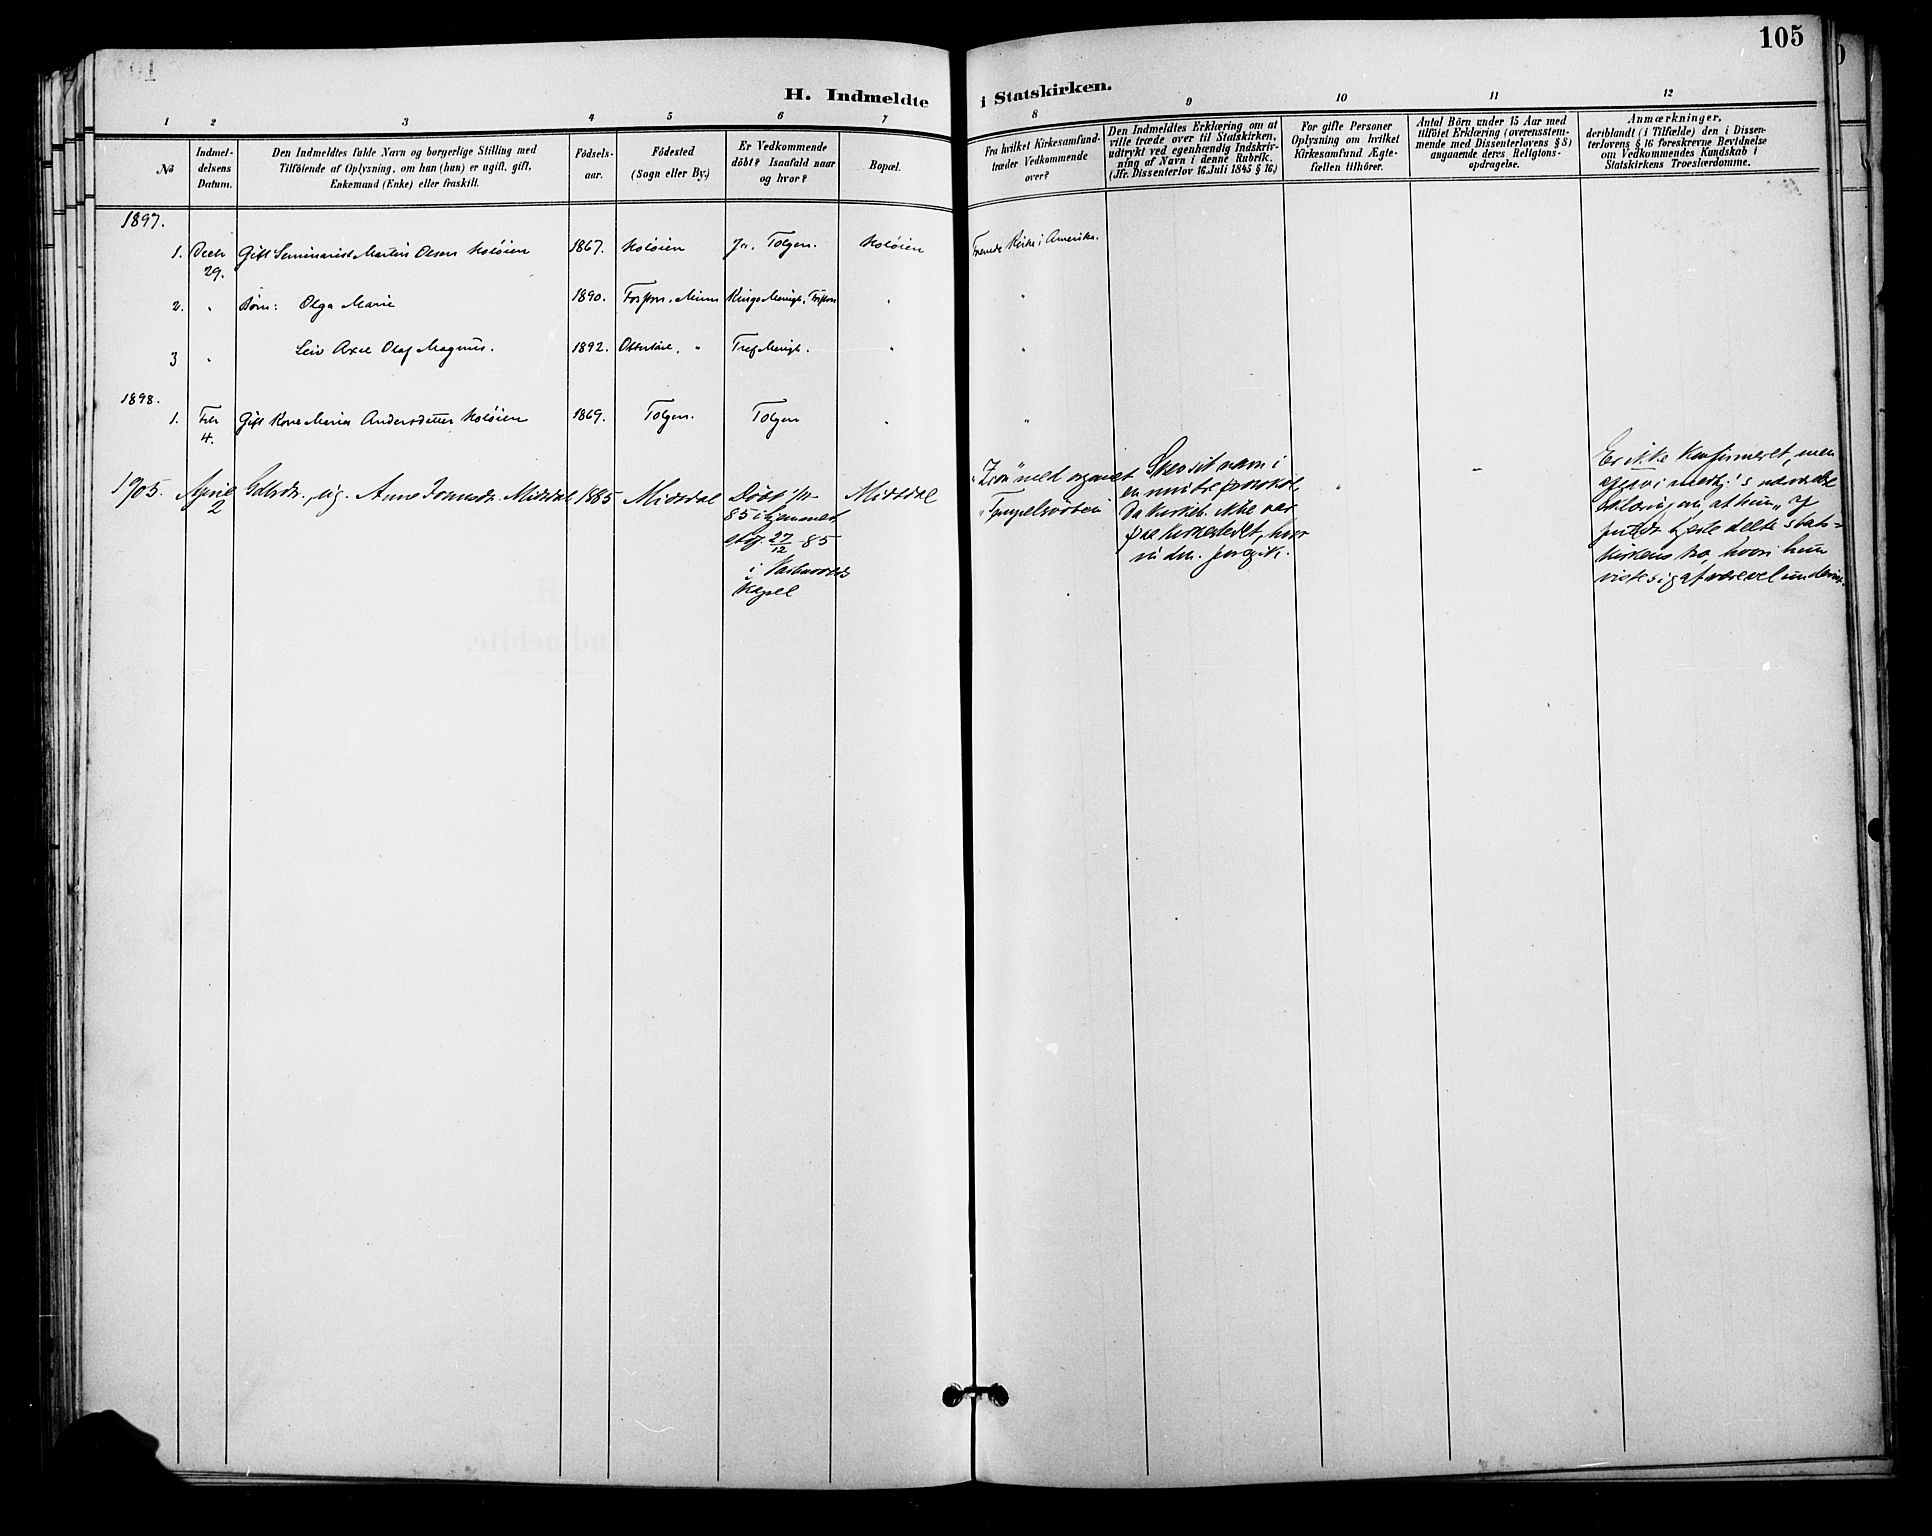 105
H. Indmeldte i Statskirken.
1 2 3 4 5 6 7 8 9 10 11 12
№
Indmel-
delsens
Datum.
Den Indmeldtes fulde Navn og borgerlige Stilling med
Tilföiende af Oplysning, om han (hun) er ugift, gift,
Enkemand (Enke) eller fraskilt.
Födsels-
aar.
Födested
(Sogn eller By.)
Er Vedkommende
döbt? Isaafald naar
og hvor?
Bopæl.
Fra hvilket Kirkesamfund-
træder Vedkommende
over?
Den Indmeldtes Erklæring om at
ville træde over til Statskirken,
udtrykt ved egenhændig Indskriv-
ning af Navn i denne Rubrik.
(Jfr. Dissenterlov 16. Juli 1845 § 16.)
For gifte Personer
Oplysning om hvilket
Kirkesamfund Ægte-
fællen tilhörer.
Antal Börn under 15 Aar med
tilföiet Erklæring (overensstem-
mende med Dissenterlovens § 8)
angaaende deres Religions-
opdragelse.
Anmærkninger,
deriblandt (i Tilfælde) den i Dissen-
terlovens § 16 foreskrevne Bevidnelse
om Vedkommendes Kundskab i
Statskirkens Troeslærdomme.
1897.
1. Decbr 29. Gift Seminarist Martin Olsen Koløien 1867. Koløien Ja, Tolgen. Koløien Fremde Kirke i Amerika.
2. " Børn: Olga Marie 1890. Fosston, Minn Kings Menigh. Fosston " "
3 " Leiv Axel Olaf Magnus. 1892. " Menigh. " "
1898.
1. Febr 4. Gift Kone Marie Andersdatter Koløien 1869. Tolgen. Tolgen " "
1905. April 2 Gdbrdr., ug. Anne Jonsdr. Midtdal 1885 Midtdal Døbt
85 i hjemmet,
stf. 27/12 - 85
i
Kapel
Midtdal
"Zion" med organet
"Tempelrøsten"
Skrev sit navn i
en mindre protokol,
da kirkeb. ikke var
paa kirkestedet, hvor
indm. foregik.
"
"
Er ikke konfirmeret, men
gav i medhj.'s nærvær
erklæring om, at hun
statskirkens tro, hvori hun
viste sig at være vel underv.